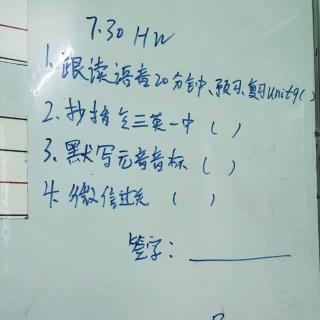 7.30 HW
1. 跟读语音20分钟、预习、复习unit9( )
2. 抄指令三英一中 ( )
3. 默写元音音标 ( )
4. 微信过关 ( )
签字: ______